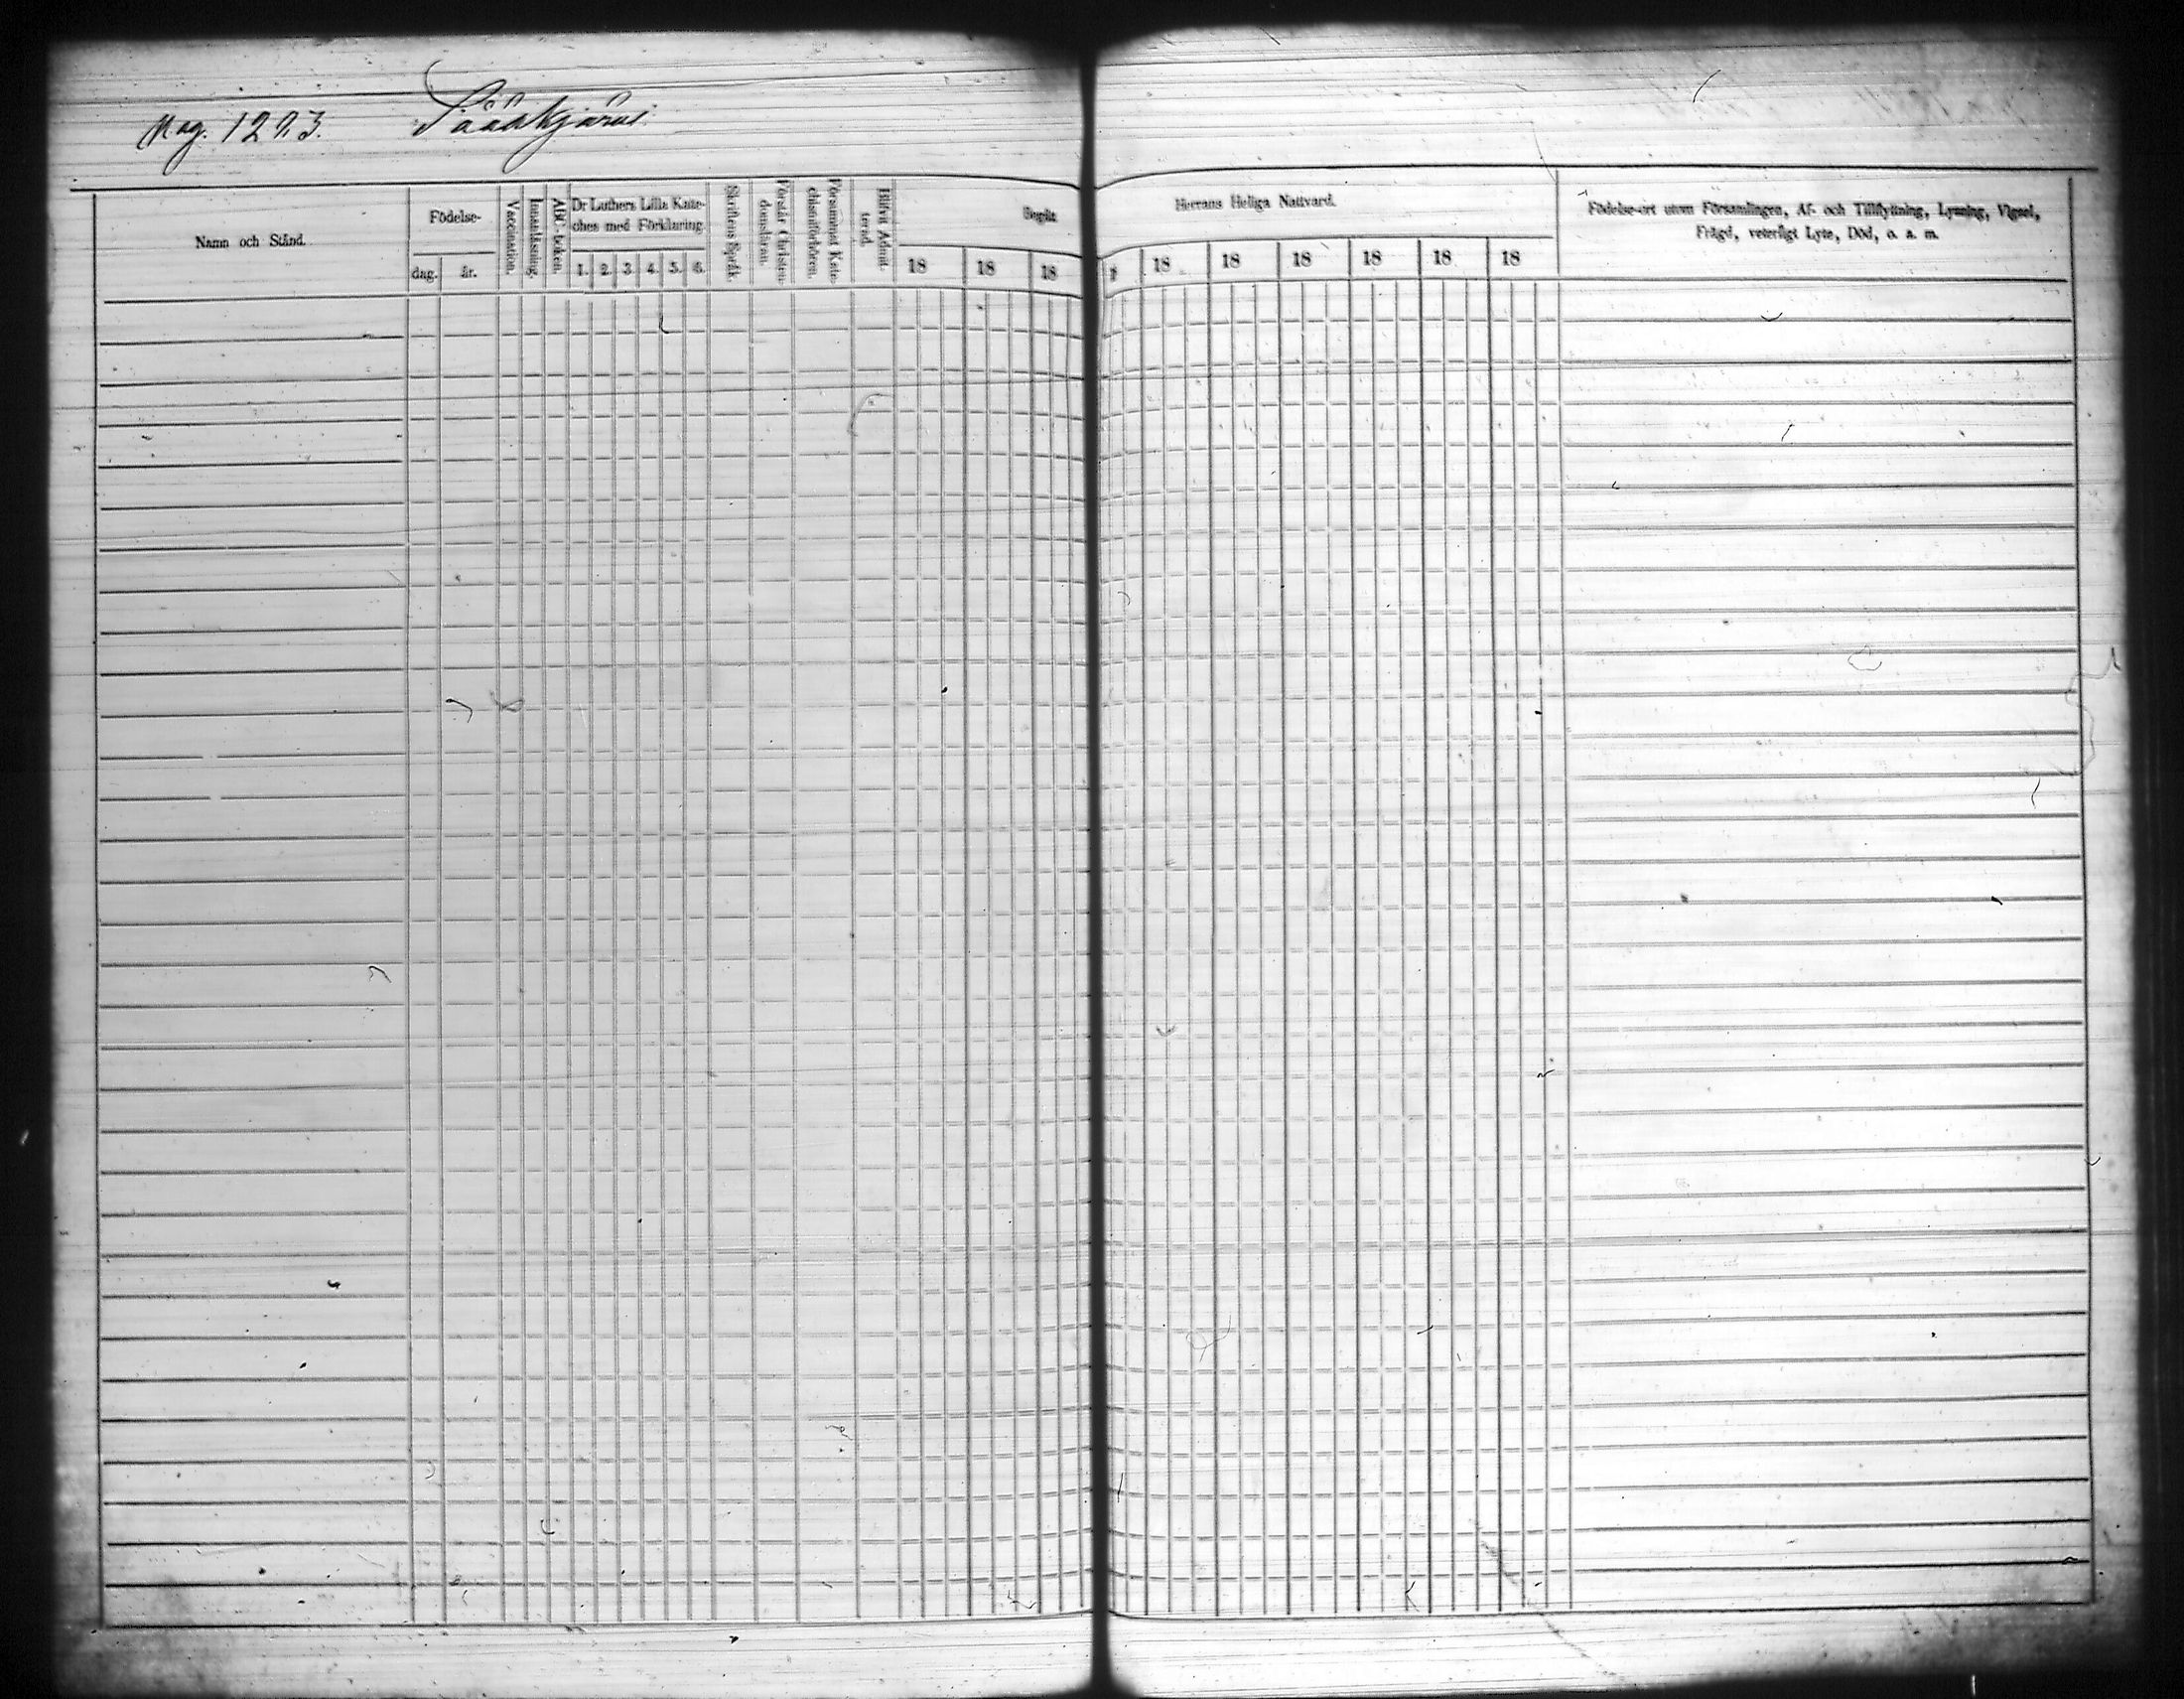 Pag. 1273. Sääskjärvi
Namn och Stånd.
Födelse-
dag.
år.
Vaccination.
Innanläsning.
ABC-boken.
Dr Luthers Lilla Kate-
ches med Förklaring.
1. 2. 3. 4. 5. 6.
Skriftens Språk.
Förstår Christen-
domsläran.
Försummat Kate-
chismiförhören.
Blifvit Admit-
terad.
Begått
18 18 18
Herrans Heliga Nattvard.
18 18 18 18 18 18
Födelse-ort utom Församlingen, Af- och Tillflyttning, Lysning, Vigsel,
Frägd, veterligt Lyte, Död, o. s. m.